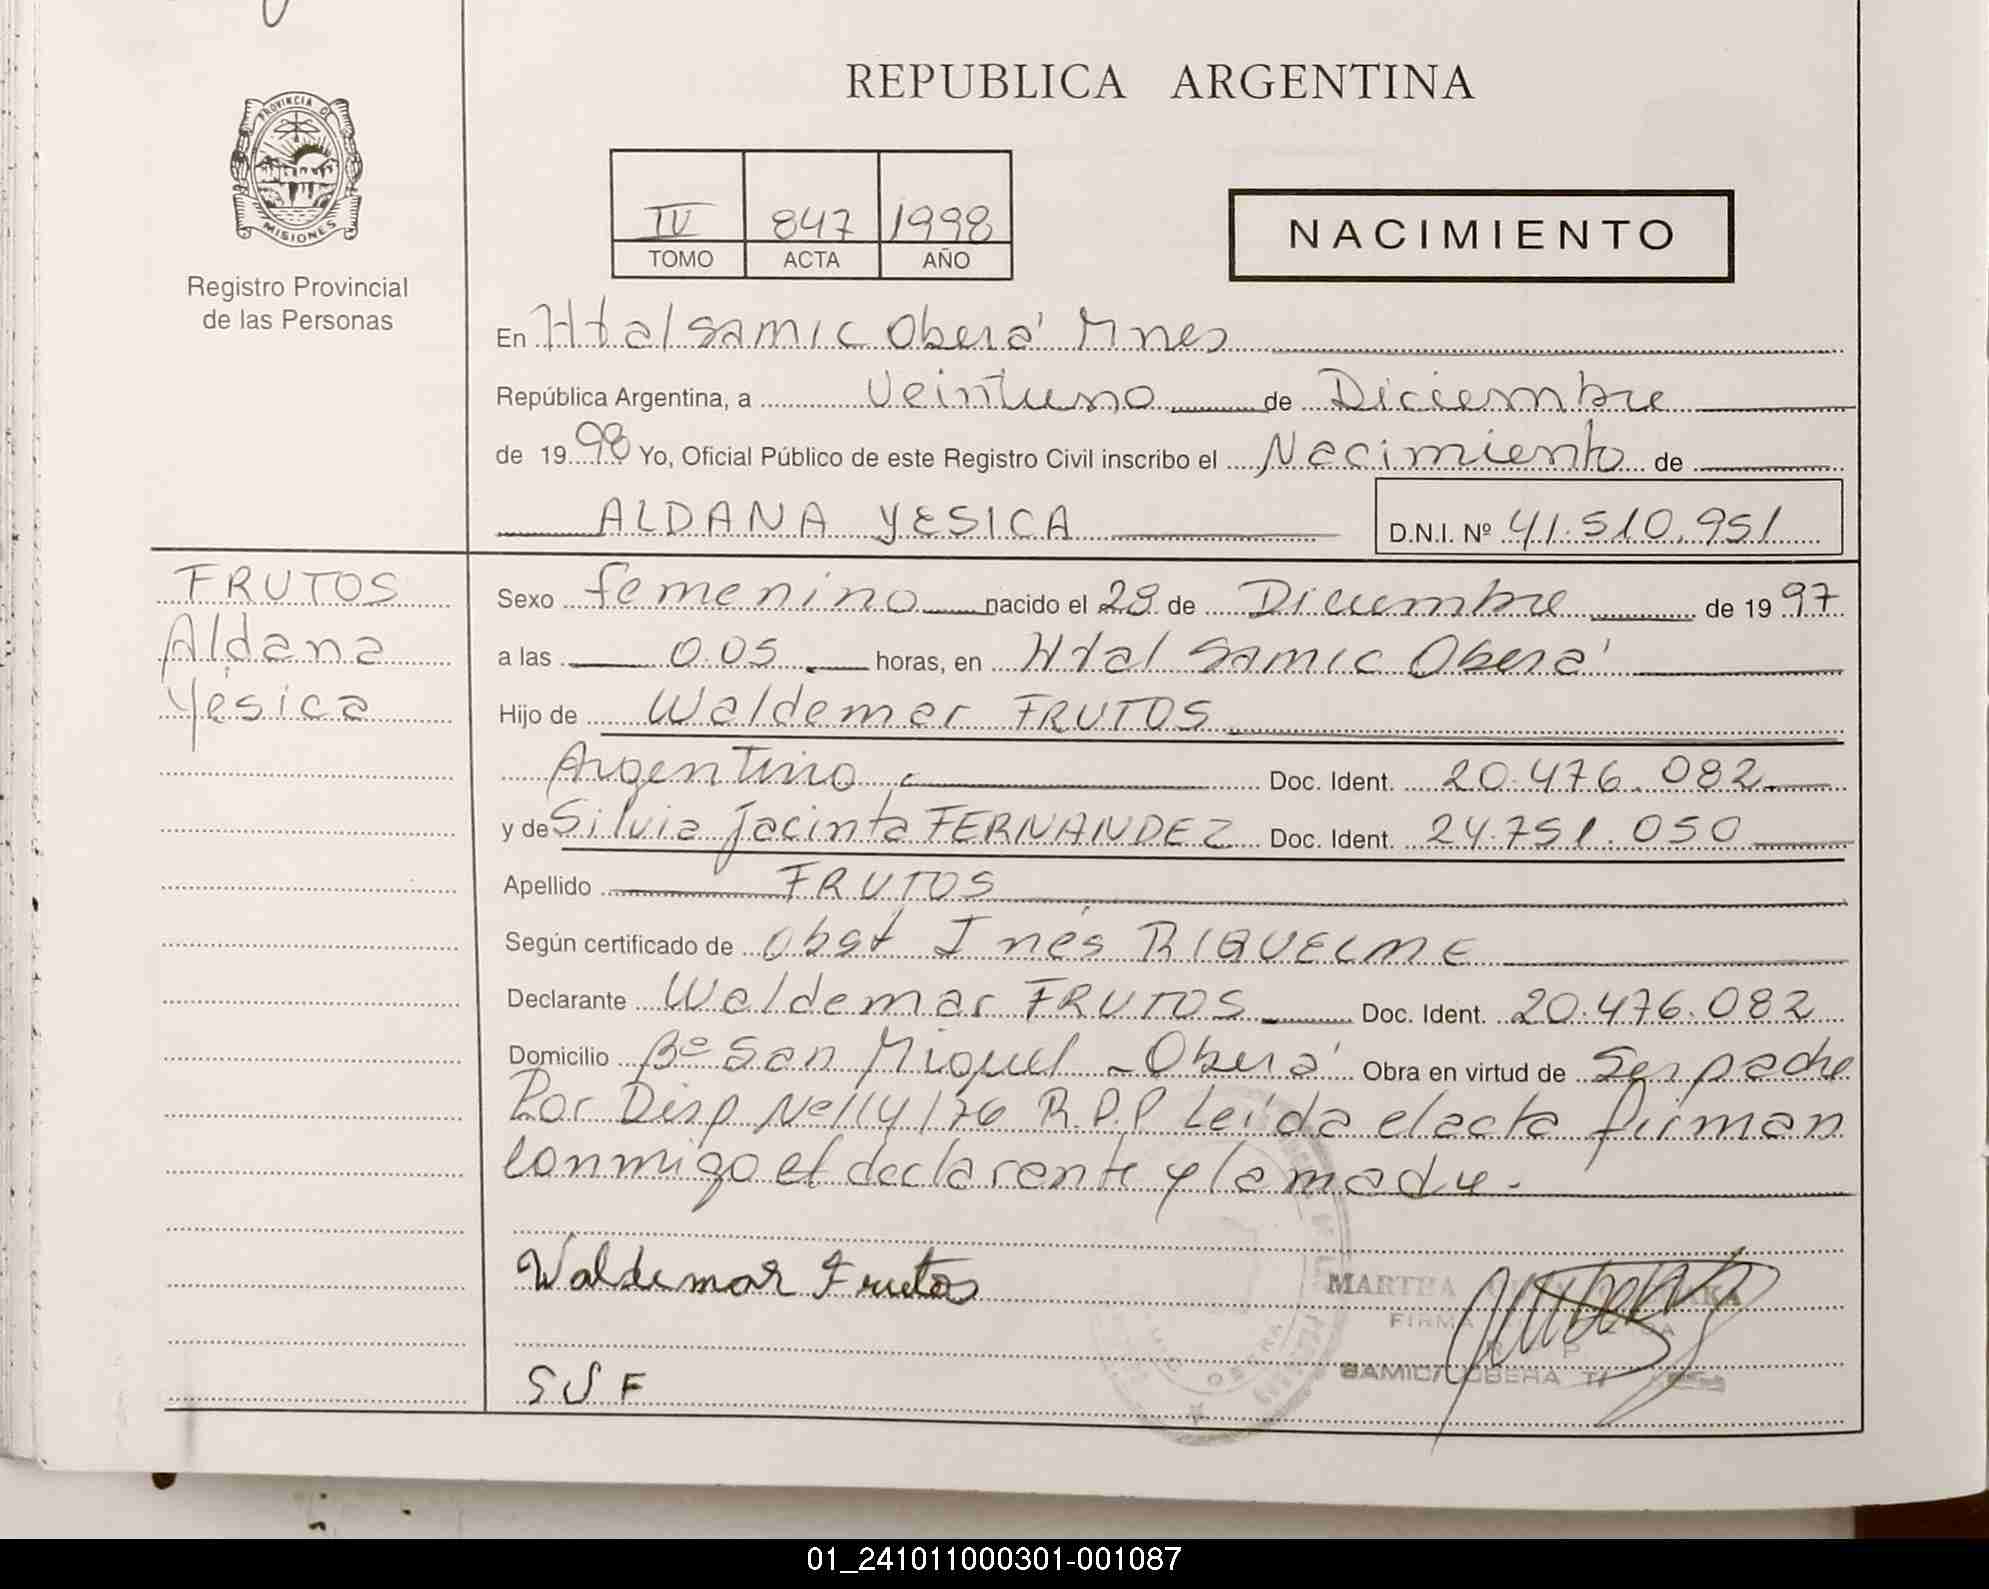 REPUBLICA ARGENTINA
PROVINCIA DE
MISIONES
Registro Provincial
de las Personas
IV 847 1998
TOMO ACTA AÑO
NACIMIENTO
En Htal Samic Oberá Mnes
República Argentina, a Veintiuno de Diciembre
de 1998 Yo, Oficial Público de este Registro Civil inscribo el Nacimiento de
ALDANA YESICA D.N.I. Nº 41.510.951
FRUTOS
Aldana
Yésica
Sexo femenino nacido el 28 de Diciembre de 1997
a las 0.05 horas, en Htal Samic Oberá
Hijo de Waldemar FRUTOS
Argentino Doc. Ident. 20.476.082.
y de Silvia Jacinta FERNANDEZ Doc. Ident. 24.751.050
Apellido FRUTOS
Según certificado de Obst Inés RIQUELME
Declarante Waldemar FRUTOS Doc. Ident. 20.476.082
Domicilio Bº San Miguel - Oberá Obra en virtud de Ser padre
Por Disp Nº 114/76 R.P.P Leída el acta firman
conmigo el declarante y la madre.-
Waldemar Frutos
MARTHA
FIRMA
SAMIC/ OBERA
OBERA
SJF
01_241011000301-001087